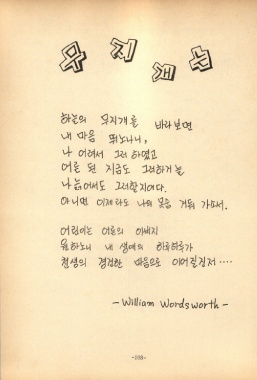 무지개
하늘의 무지개를 바라보면
내 마음 뛰노나니,
나 어려서 그러하였고
어른 된 지금도 그러하거늘
나 늙어서도 그러할지어다.
아니면 이제라도 나의 목숨 거둬 가소서.
어린이는 어른의 아버지
원하노니 내 생애의 하루하루가
천생의 경건한 마음으로 이어질진저····
- William Wordsworth -
-108-